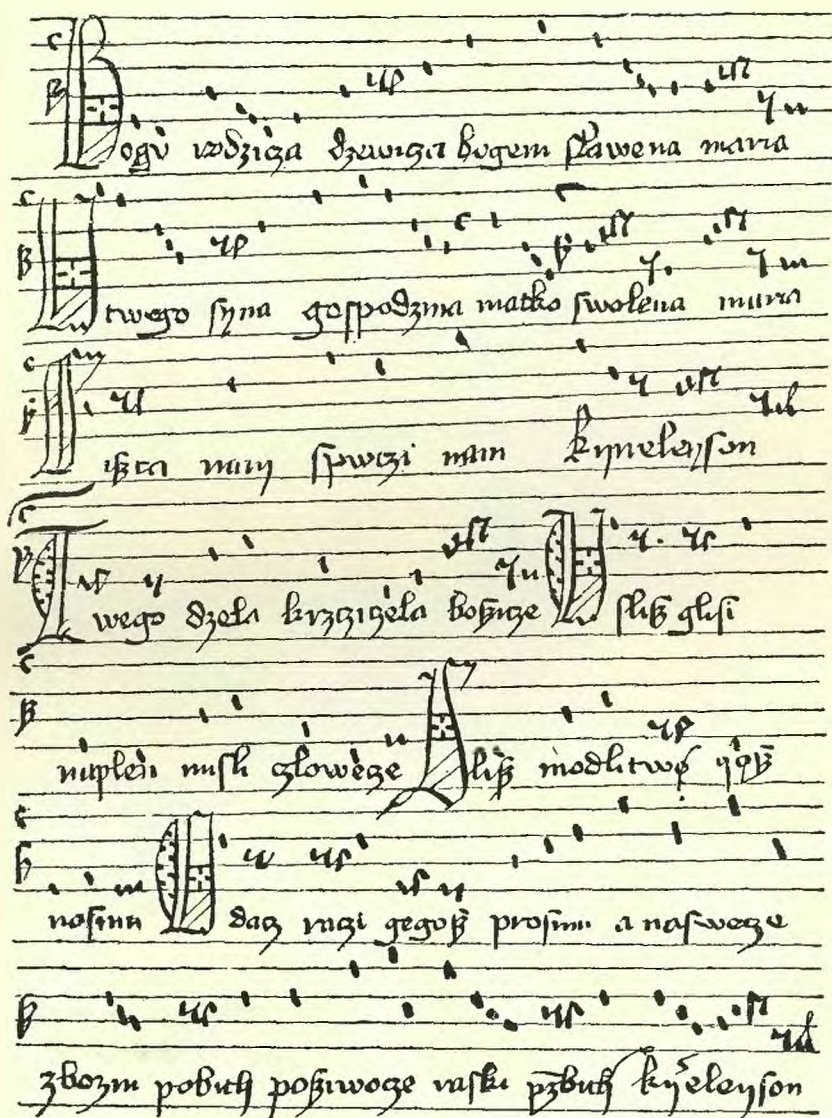 Bogv rodzicza dzewicza bogem slawena maria
U twego syna gospodzina matko swolena maria
nam spwczi nam kyrieleyson
Twego dzela krzcziczela bozicze Uslisz glosi
naplen misli czlowecze Slisz modlitwø yøsz
nosimi dacz raczi gegosz prosimi a naswecze
zbozni pobith posziwocze raski pzebith kyeleyson